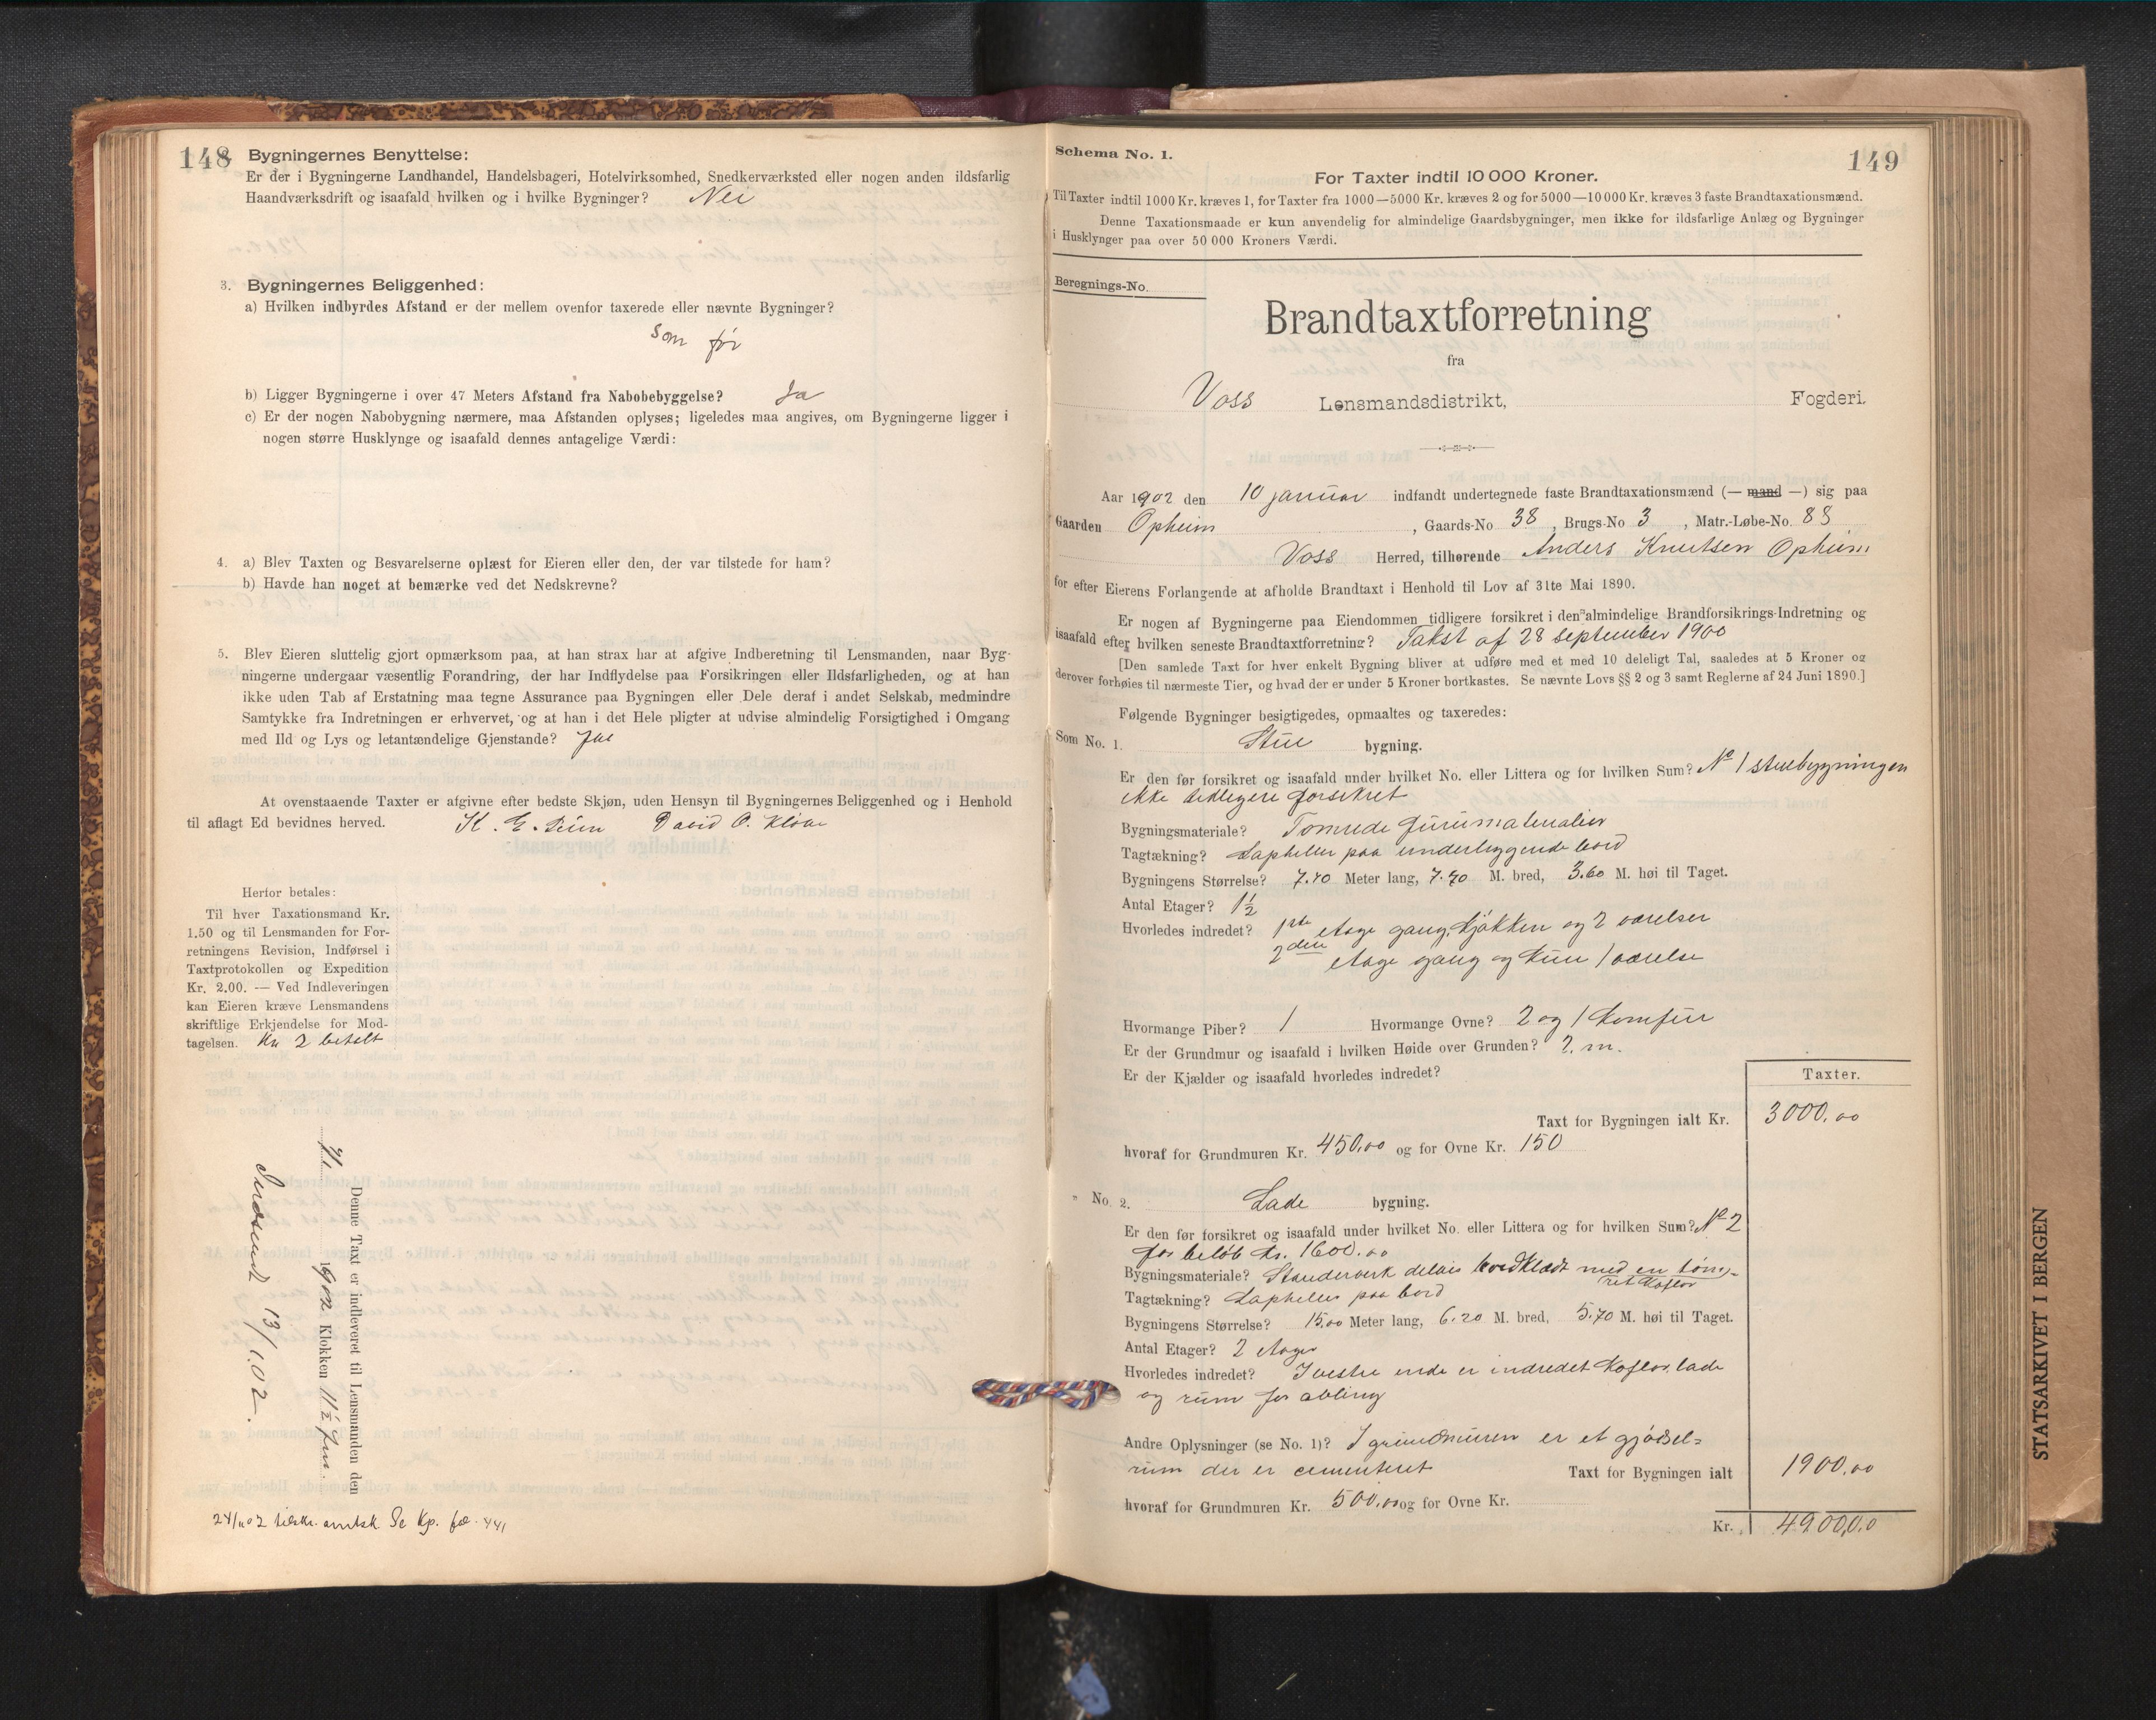 148
Bygningernes Benyttelse:
Er der i Bygningerne Landhandel, Handelsbageri, Hotelvirksomhed, Snedkerværksted eller nogen anden ildsfarlig
Haandværksdrift og isaafald hvilken og i hvilke Bygninger? Nei
3. Bygningernes Beliggenhed:
a) Hvilken indbyrdes Afstand er der mellem ovenfor taxerede eller nævnte Bygninger?
Som før
b) Ligger Bygningerne i over 47 Meters Afstand fra Nabobebyggelse? Ja
c) Er der nogen Nabobygning nærmere, maa Afstanden oplyses; ligeledes maa angives, om Bygningerne ligger i
nogen større Husklynge og isaafald dennes antagelige Værdi:
4. a) Blev Taxten og Besvarelserne oplæst for Eieren eller den, der var tilstede for ham?
b) Havde han noget at bemærke ved det Nedskrevne?
5. Blev Eieren sluttelig gjort opmærksom paa, at han strax har at afgive Indberetning til Lensmanden, naar Byg-
ningerne undergaar væsentlig Forandring, der har Indflydelse paa Forsikringen eller Ildsfarligheden, og at han
ikke uden Tab af Erstatning maa tegne Assurance paa Bygningen eller Dele deraf i andet Selskab, medmindre
Samtykke fra Indretningen er erhvervet, og at han i det Hele pligter at udvise almindelig Forsigtighed i Omgang
med Ild og Lys og letantændelige Gjenstande?
At ovenstaaende Taxter er afgivne efter bedste Skjøn, uden Hensyn til Bygningernes Beliggenhed og i Henhold
til aflagt Ed bevidnes herved. K. E. David O. Kløve
Herfor betales:
Til hver Taxationsmand Kr.
1.50 og til Lensmanden for For-
retningens Revision, Indførsel i
Taxtprotokollen og Expedition
Kr. 2.00. — Ved Indleveringen
kan Eieren kræve Lensmandens
skriftlige Erkjendelse for Mod-
tagelsen. Kr 2 betalt
Denne Taxt er indleveret til Lensmanden den
1902 Klokken 11½ fm.
13/1.02.
Schema No. 1.
149
For Taxter indtil 10 000 Kroner.
Til Taxter indtil 1000 Kr. kræves 1, for Taxter fra 1000—5000 Kr. kræves 2 og for 5000—10 000 Kr. kræves 3 faste Brandtaxationsmænd.
Denne Taxationsmaade er kun anvendelig for almindelige Gaardsbygninger, men ikke for ildsfarlige Anlæg og Bygninger
i Husklynger paa over 50 000 Kroners Værdi.
Beregnings-No.
Brandtaxtforretning
fra
Voss Lensmandsdistrikt, Fogderi.
Aar 1902 den 10 januar indfandt undertegnede faste Brandtaxationsmænd (— mand —) sig paa
Gaarden Opheim, Gaards-No 38, Brugs-No 3, Matr.-Løbe-No. 88
Voss Herred, tilhørende Anders Knutsen Opheim
for efter Eierens Forlangende at afholde Brandtaxt i Henhold til Lov af 31te Mai 1890.
Er nogen af Bygningerne paa Eiendommen tidligere forsikret i den almindelige Brandforsikrings-Indretning og
isaafald efter hvilken seneste Brandtaxtforretning? Takst af 28 september 1900
[Den samlede Taxt for hver enkelt Bygning bliver at udføre med et med 10 deleligt Tal, saaledes at 5 Kroner og
derover forhøies til nærmeste Tier, og hvad der er under 5 Kroner bortkastes. Se nævnte Lovs §§ 2 og 3 samt Reglerne af 24 Juni 1890.]
Følgende Bygninger besigtigedes, opmaaltes og taxeredes:
Som No. 1. Stue bygning.
Er den før forsikret og isaafald under hvilket No. eller Littera og for hvilken Sum? No 1 stuebygningen
ikke tidligere forsikret
Bygningsmateriale? Tømrede furumaterialier
Tagtækning? Lapheller paa underliggende bord
Bygningens Størrelse? 7.40 Meter lang, 7.40 M. bred, 3.60 M. høi til Taget.
Antal Etager? 1½
Hvorledes indredet? 1ste etage gang, kjøkken og 2 værelser
2den etage gang og kun 1 værelse
Hvormange Piber? 1 Hvormange Ovne? 2 og 1 komfur
Er der Grundmur og isaafald i hvilken Høide over Grunden? 2. m.
Er der Kjælder og isaafald hvorledes indredet?
Taxter.
Taxt for Bygningen ialt Kr. 3000,00
hvoraf for Grundmuren Kr. 450,00 og for Ovne Kr. 150
" No. 2. Lade bygning.
Er den før forsikret og isaafald under hvilket No. eller Littera og for hvilken Sum? No 2
for beløb kr. 1600.00
Bygningsmateriale? Standerverk delvis bordklædt med en tøm-
ret koflor
Tagtækning? Lapheller paa bord
Bygningens Størrelse? 15.00 Meter lang, 6.20 M. bred, 5.70 M. høi til Taget.
Antal Etager? 2 etager
Hvorledes indredet? I vestre ende er indredet koflor, lade
og rum for avling
Andre Oplysninger (se No. 1)? I grundmuren er et gjødsel-
rum der er cementeret Taxt for Bygningen ialt 1900,00
hvoraf for Grundmuren Kr. 500,00 og for Ovne Kr.
Kr. 4900,00
STATSARKIVET I BERGEN